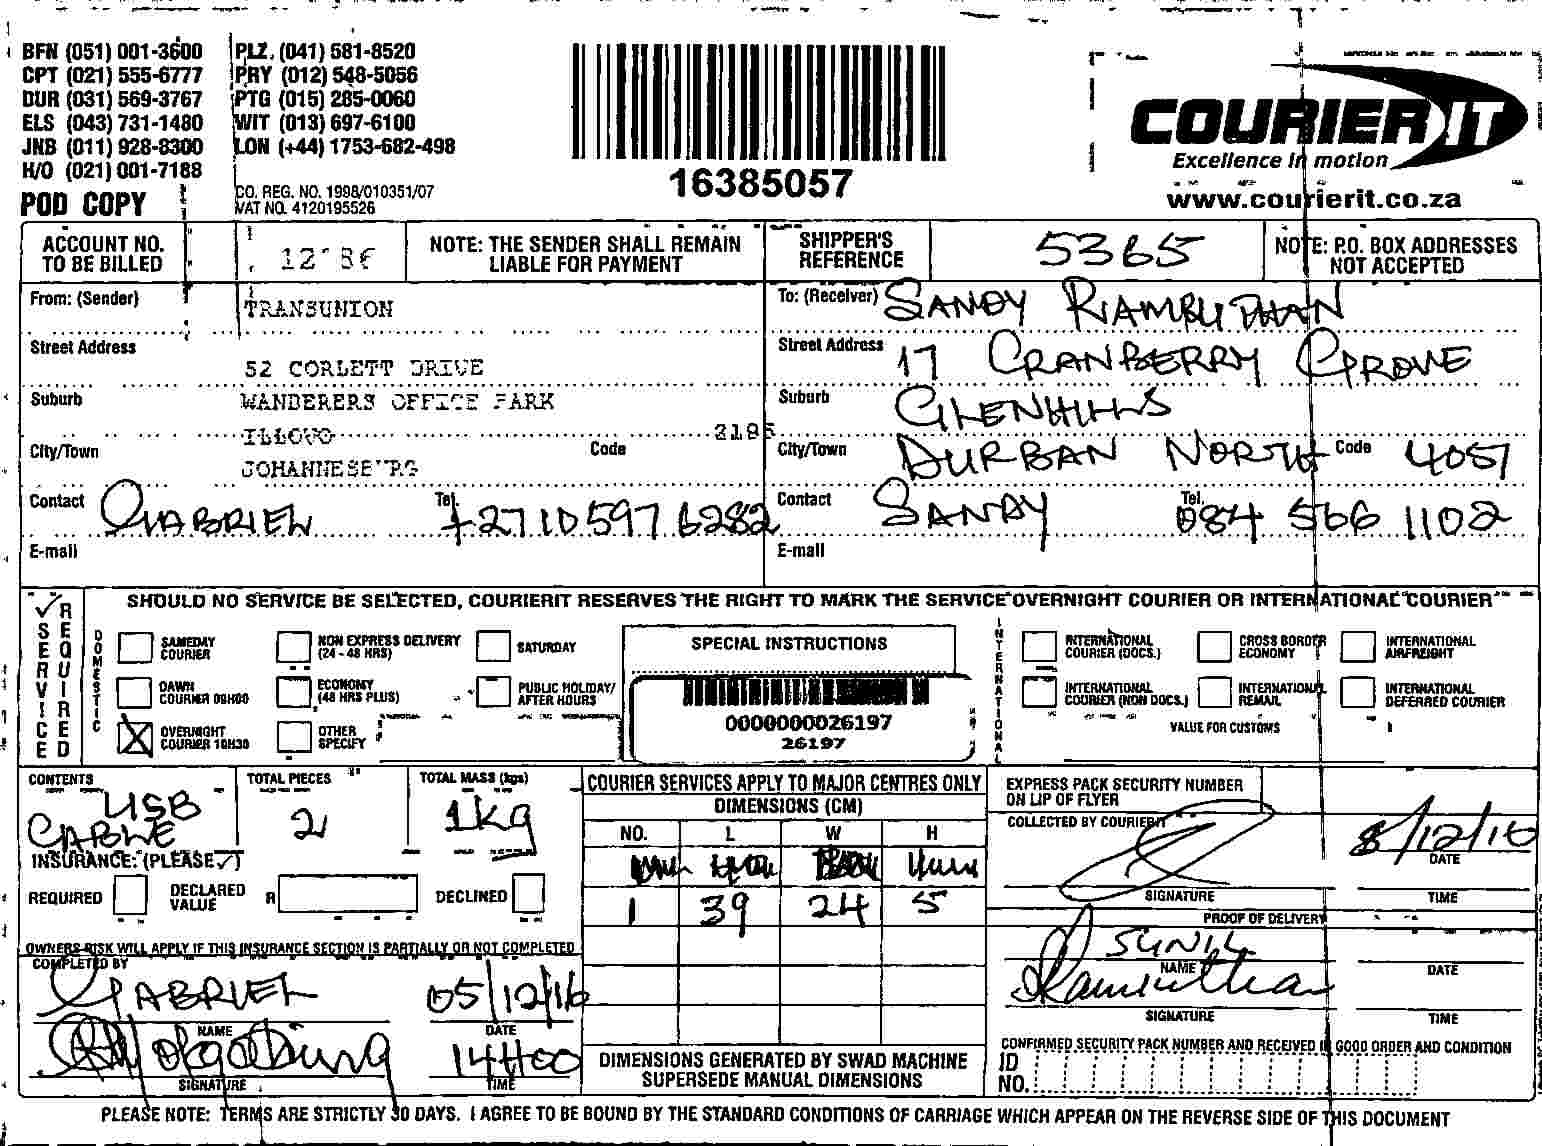 BFN (051) 001-3600 PLZ. (041) 581-8520
CPT (021) 555-6777 PRY (012) 548-5056
DUR (031) 569-3767 PTG (015) 285-0060
ELS (043) 731-1480 WIT (013) 697-6100
JNB (011) 928-8300 LON (+44) 1753-682-498
H/O (021) 001-7188
POD COPY
CO. REG. NO. 1998/010351/07
VAT NO. 4120195526
16385057
COURIER IT
Excellence in motion
www.courierit.co.za
ACCOUNT NO. TO BE BILLED
NOTE: THE SENDER SHALL REMAIN LIABLE FOR PAYMENT
SHIPPER'S REFERENCE 5365
NOTE: P.O. BOX ADDRESSES NOT ACCEPTED
From: (Sender) TRANSUNION
Street Address
52 CORLETT DRIVE
Suburb WANDERERS OFFICE PARK
ILLOVO
City/Town JOHANNESBURG Code
Contact GABRIEL Tel. +27 10 597 6282
E-mail
To: (Receiver) SANDY RAMBUTHAN
Street Address 17 CRANBERRY GROVE
Suburb GLENHILLS
City/Town DURBAN NORTH Code 4051
Contact SANDY Tel. 084 566 1102
E-mail
SERVICE REQUIRED
SHOULD NO SERVICE BE SELECTED, COURIERIT RESERVES THE RIGHT TO MARK THE SERVICE OVERNIGHT COURIER OR INTERNATIONAL COURIER
DOMESTIC
SAMEDAY COURIER
NON EXPRESS DELIVERY (24 - 48 HRS)
SATURDAY
DAWN COURIER 09H00
ECONOMY (48 HRS PLUS)
PUBLIC HOLIDAY/ AFTER HOURS
OVERNIGHT COURIER 10H30
OTHER SPECIFY
SPECIAL INSTRUCTIONS
0000000026197
26197
INTERNATIONAL
INTERNATIONAL COURIER (DOCS.)
CROSS BORDER ECONOMY
INTERNATIONAL AIRFREIGHT
INTERNATIONAL COURIER (NON DOCS.)
INTERNATIONAL REMAIL
INTERNATIONAL DEFERRED COURIER
VALUE FOR CUSTOMS
CONTENTS USB CABLE
TOTAL PIECES
TOTAL MASS (kgs) 1kg
INSURANCE: (PLEASE ✓)
REQUIRED
DECLARED VALUE R
DECLINED
OWNERS RISK WILL APPLY IF THIS INSURANCE SECTION IS PARTIALLY OR NOT COMPLETED
COMPLETED BY
GABRIEL 05/12/16
NAME DATE
14H00
SIGNATURE TIME
COURIER SERVICES APPLY TO MAJOR CENTRES ONLY
DIMENSIONS (CM)
NO. L W H
1 39 24 5
DIMENSIONS GENERATED BY SWAD MACHINE SUPERSEDE MANUAL DIMENSIONS
EXPRESS PACK SECURITY NUMBER ON LIP OF FLYER
COLLECTED BY COURIERIT
/12/16
DATE
SIGNATURE TIME
PROOF OF DELIVERY
SUNIL
NAME DATE
SIGNATURE TIME
CONFIRMED SECURITY PACK NUMBER AND RECEIVED IN GOOD ORDER AND CONDITION
ID NO.
PLEASE NOTE: TERMS ARE STRICTLY 30 DAYS. I AGREE TO BE BOUND BY THE STANDARD CONDITIONS OF CARRIAGE WHICH APPEAR ON THE REVERSE SIDE OF THIS DOCUMENT